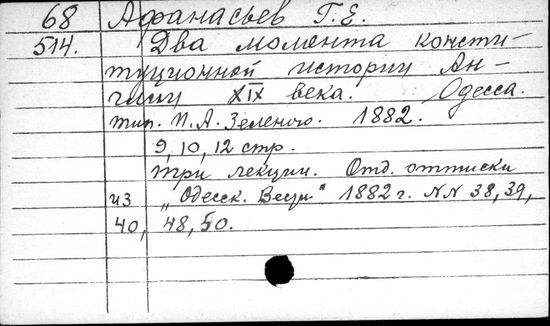 68 Афанасьев Г. Е.
514. Два момента консти-
туционной истории Ан-
глии XIX века. Одесса.
тип. П. А. Зеленого. 1882.
9, 10, 12 стр.
три лекции. Отд. оттиски
из „Одесск. Вестн" 1882 г. NN 38, 39,
40, 48, 50.